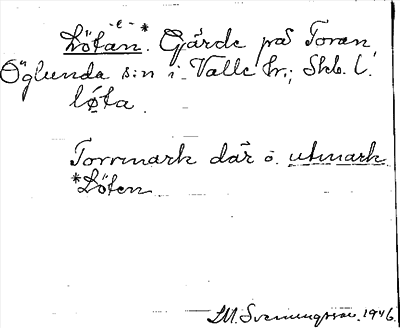 -e- *
Lötan. Gärde på Toran,
Öglunda s:n i Valle hr.; Skb. l.
løta.
Torrmark där o. utmark.
*Löten
M. Svenungsson. 1946.